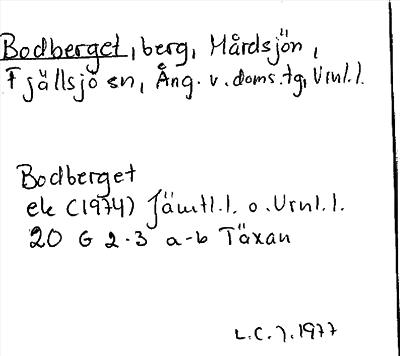 Bodberget, berg, Mårdsjön,
Fjällsjö sn, Ång. v. doms.tg, Vrnl.l.
Bodberget
ek (1974) Jämtl.l. o. Vrnl.l.
20 G 2·3 a-b Täxan
L.C.J. 1977